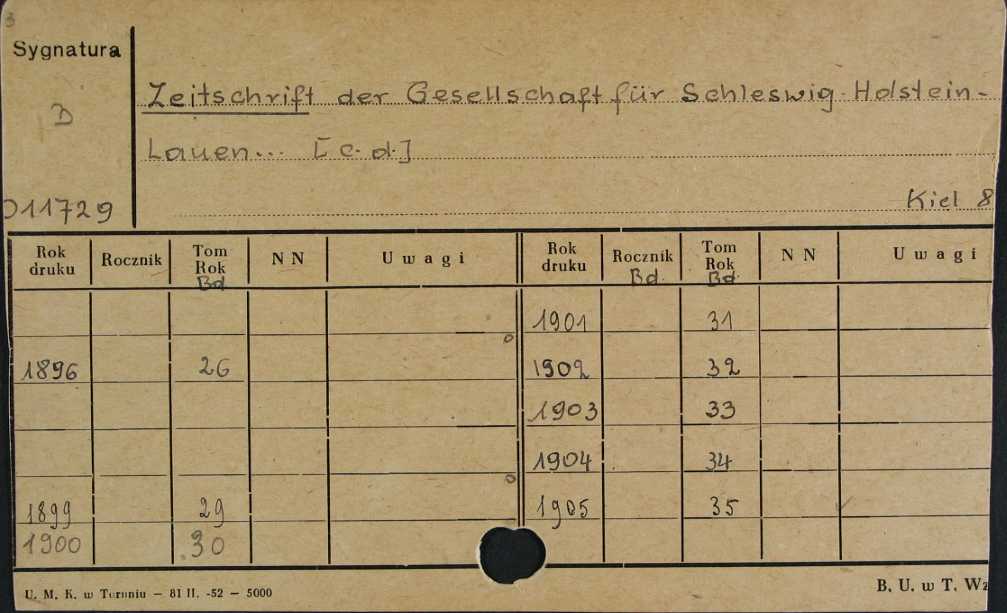 3
Sygnatura
D
011729
Zeitschrift der Gesellschaft für Schleswig-Holstein-
Lauen... [c.d.]
Kiel 8
Rok druku Rocznik Tom Rok Bd NN Uwagi Rok druku Rocznik Bd. Tom Rok Bd. NN Uwagi
1901 31
1896 26 1902 32
1903 33
1904 34
1899 29 1905 35
1900 30
U. M. K. w Toruniu – 81 II. -52 – 5000
B. U. w T. Wz